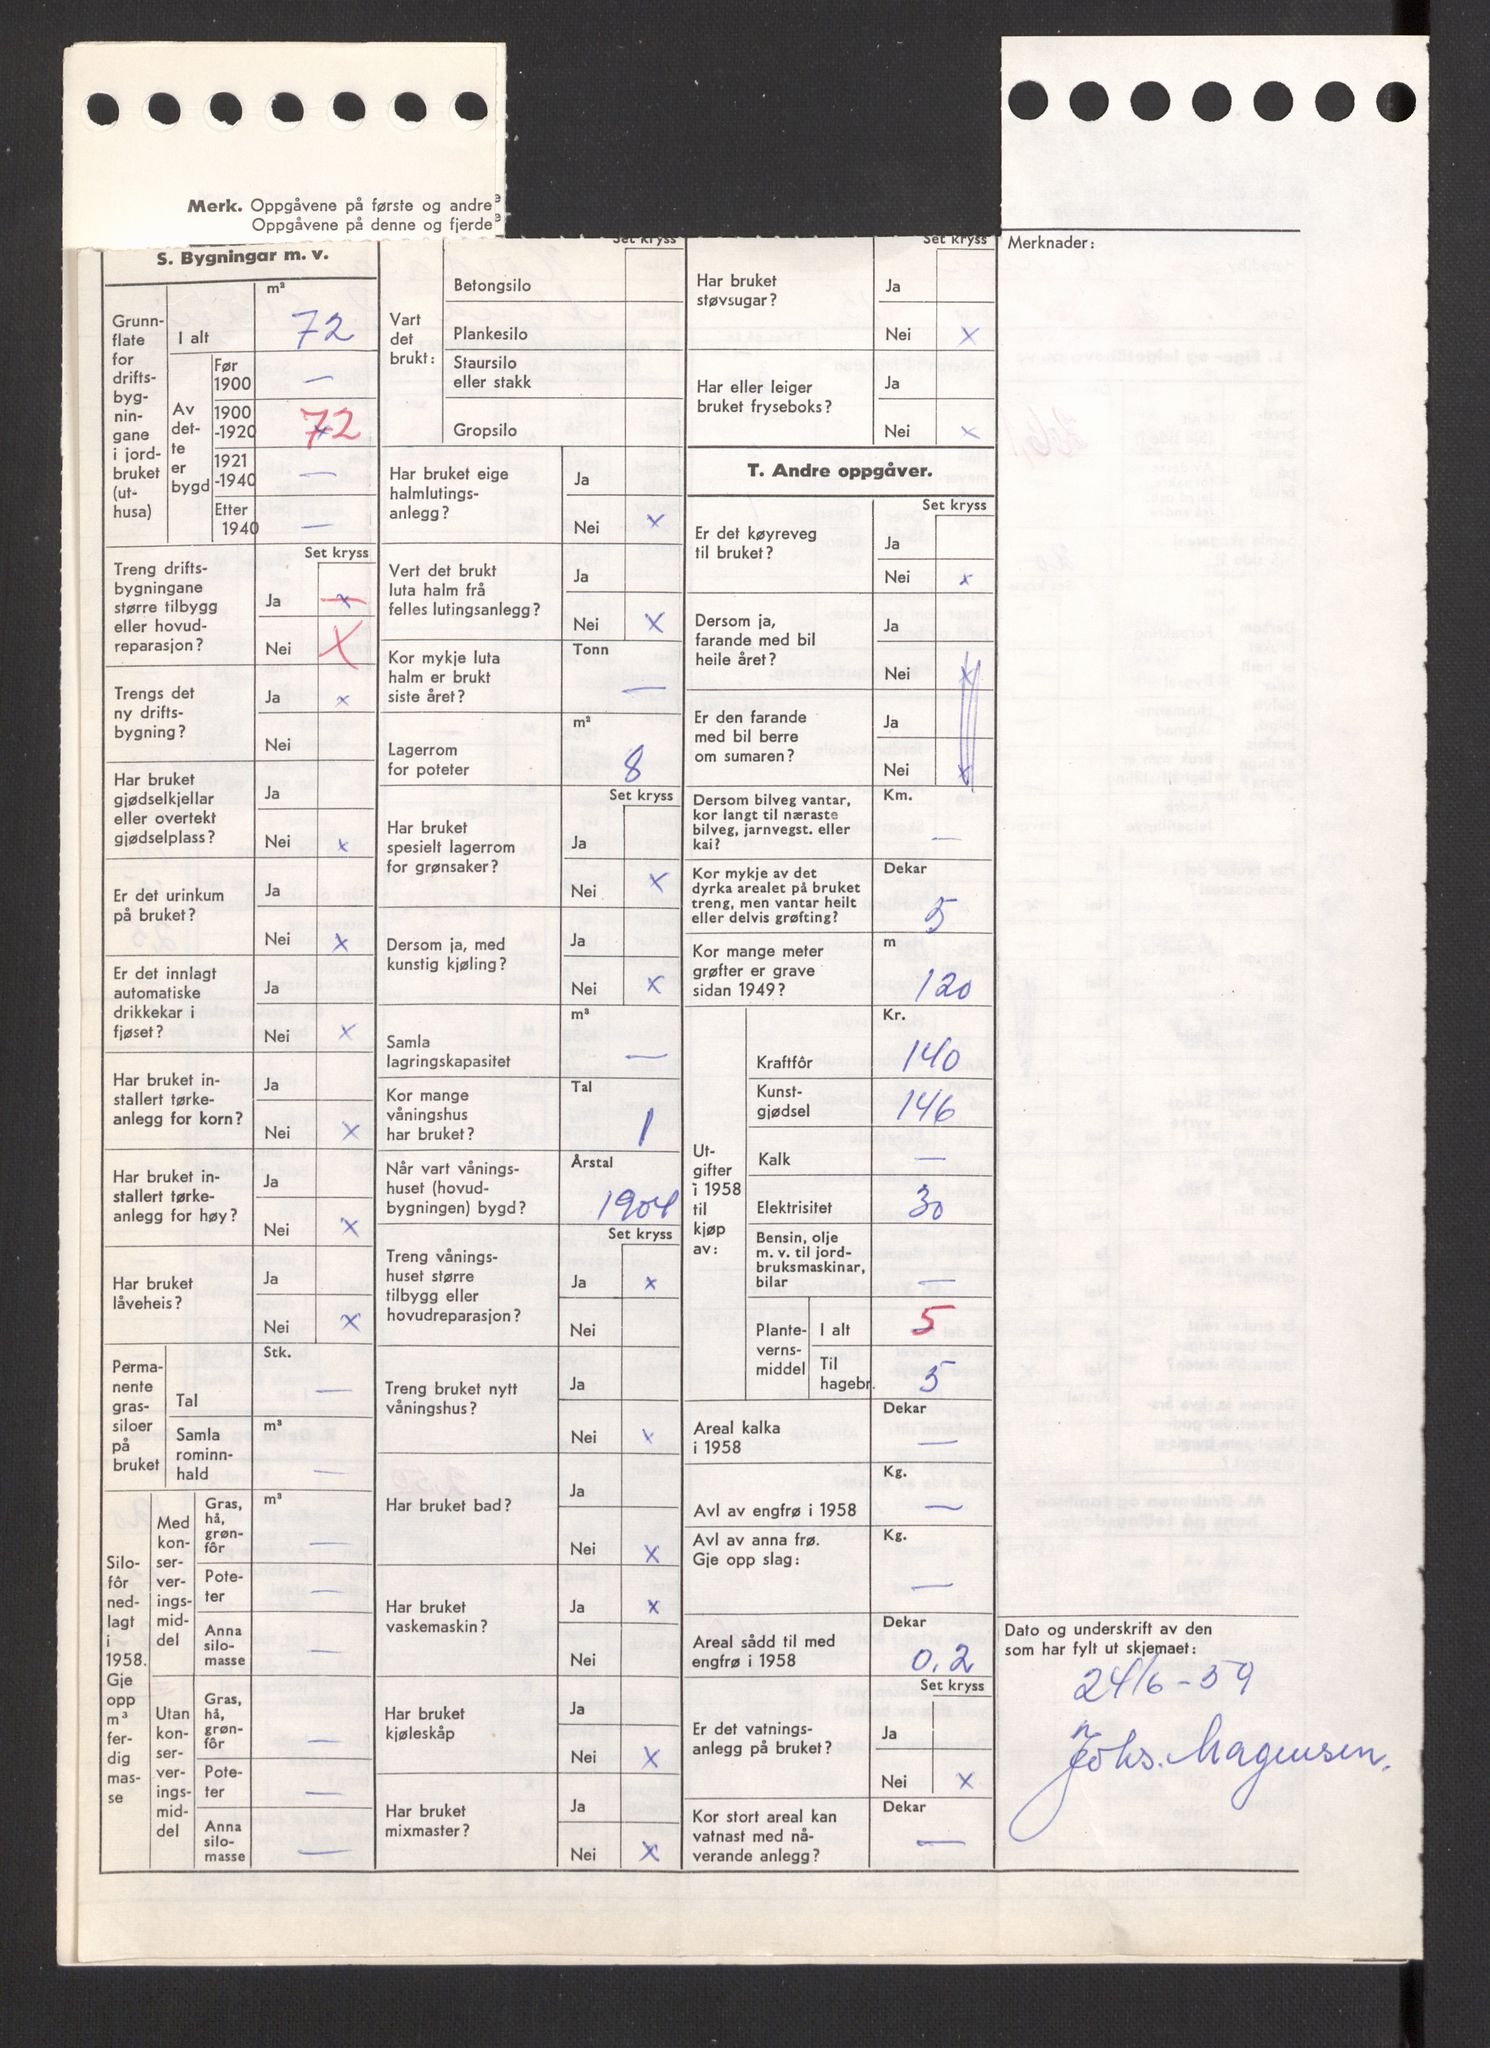 Merk. Oppgåvene på første og andre
Oppgåvene på denne og fjerde
S. Bygningar m. v.
Grunn-
flate
for
drifts-
byg-
nin-
gane
i jord-
bruket
(ut-
husa)
m²
I alt 72
Av
det-
te
er
bygd
Før
1900 —
1900
-1920 x 72
1921
-1940 —
Etter
1940 —
Set kryss
Treng drifts-
bygningane
større tilbygg
eller hovud-
reparasjon?
Ja x
Nei X
Trengs det
ny drifts-
bygning?
Ja x
Nei
Har bruket
gjødselkjellar
eller overtekt
gjødselplass?
Ja
Nei x
Er det urinkum
på bruket?
Ja
Nei x
Er det innlagt
automatiske
drikkekar i
fjøset?
Ja
Nei x
Har bruket in-
stallert tørke-
anlegg for korn?
Ja
Nei x
Har bruket in-
stallert tørke-
anlegg for høy?
Ja
Nei x
Har bruket
låveheis?
Ja
Nei x
Perma-
nente
gras-
siloer
på
bruket
Stk.
Tal —
m³
Samla
rominn-
hald —
Silo-
fôr
ned-
lagt
i
1958.
Gje
opp
m³
fer-
dig
mas-
se
Med
kon-
ser-
ver-
ings-
mid-
del
m³
Gras,
hå,
grøn-
fôr —
Pote-
ter —
Anna
silo-
masse —
Utan
kon-
ser-
ver-
ings-
mid-
del
Gras,
hå,
grøn-
fôr —
Pote-
ter —
Anna
silo-
masse —
Set kryss
Vart
det
brukt:
Betongsilo
Plankesilo
Staursilo
eller stakk
Gropsilo
Har bruket eige
halmlutings-
anlegg?
Ja
Nei x
Vert det brukt
luta halm frå
felles lutingsanlegg?
Ja
Nei x
Kor mykje luta
halm er brukt
siste året?
Tonn
—
Lagerrom
for poteter
m²
8
Set kryss
Har bruket
spesielt lagerrom
for grønsaker?
Ja
Nei x
Dersom ja, med
kunstig kjøling?
Ja
Nei x
Samla
lagringskapasitet
m³
—
Kor mange
våningshus
har bruket?
Tal
1
Når vart vånings-
huset (hovud-
bygningen) bygd?
Årstal
1904
Set kryss
Treng vånings-
huset større
tilbygg eller
hovudreparasjon?
Ja x
Nei
Treng bruket nytt
våningshus?
Ja
Nei x
Har bruket bad?
Ja
Nei x
Har bruket
vaskemaskin?
Ja x
Nei
Har bruket
kjøleskåp
Ja
Nei x
Har bruket
mixmaster?
Ja
Nei x
Set kryss
Har bruket
støvsugar?
Ja
Nei x
Har eller leiger
bruket fryseboks?
Ja
Nei x
T. Andre oppgåver.
Set kryss
Er det køyreveg
til bruket?
Ja
Nei x
Dersom ja,
farande med bil
heile året?
Ja
Nei x
Er den farande
med bil berre
om sumaren?
Ja
Nei x
Dersom bilveg vantar,
kor langt til næraste
bilveg, jarnvegst. eller
kai?
Km.
—
Kor mykje av det
dyrka arealet på bruket
treng, men vantar heilt
eller delvis grøfting?
Dekar
5
Kor mange meter
grøfter er grave
sidan 1949?
m
120
Ut-
gifter
i 1958
til
kjøp
av:
Kr.
Kraftfôr 140
Kunst-
gjødsel 146
Kalk —
Elektrisitet 30
Bensin, olje
m. v. til jord-
bruksmaskinar,
bilar —
Plante-
verns-
middel
I alt 5
Til
hagebr. 5
Areal kalka
i 1958
Dekar
—
Avl av engfrø i 1958
Kg.
—
Avl av anna frø.
Gje opp slag:
Kg.
—
Areal sådd til med
engfrø i 1958
Dekar
0.2
Set kryss
Er det vatnings-
anlegg på bruket?
Ja
Nei x
Kor stort areal kan
vatnast med nå-
verande anlegg?
Dekar
—
Merknader:
Dato og underskrift av den
som har fylt ut skjemaet:
24/6-59
Johs. Magnusen.